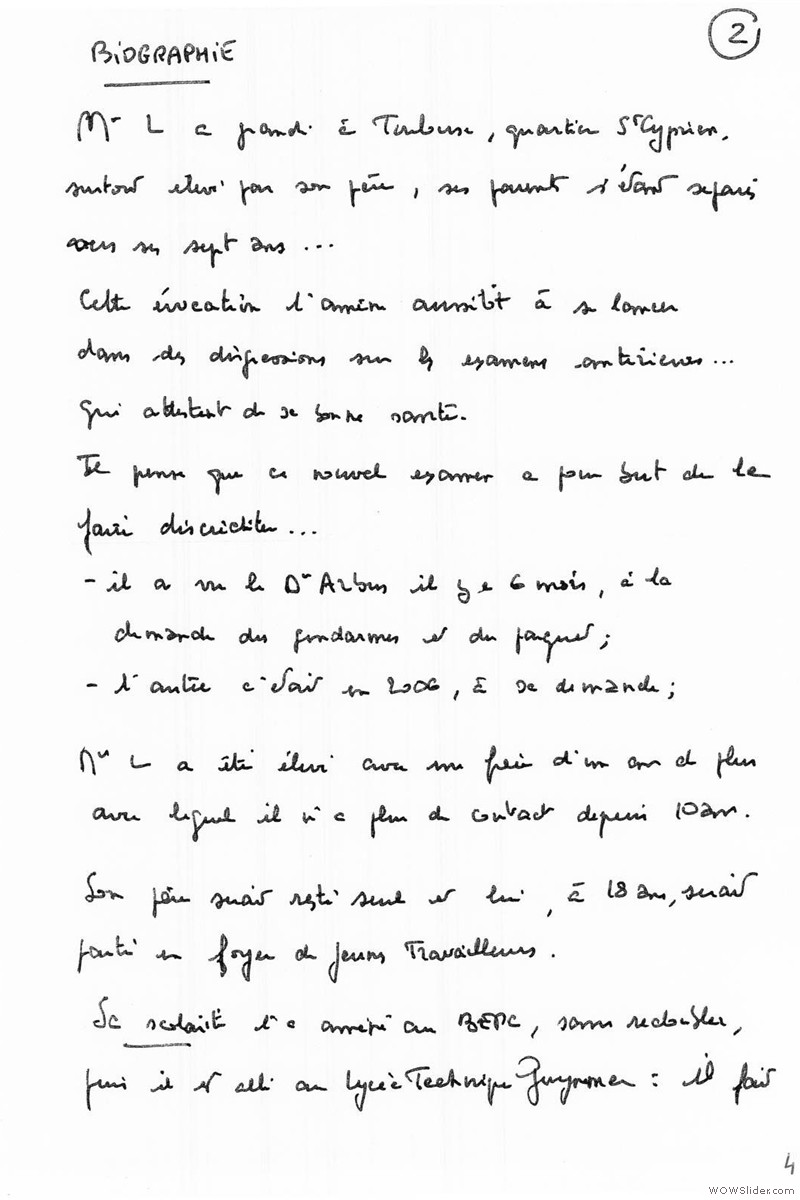 2
BIOGRAPHIE
Mr L a grandi à Toulouse, quartier St Cyprien,
surtout élevé par son père, ses parents s'étant séparés
vers ses sept ans ...
Cette évocation l'amène aussitôt à se lancer
dans des digressions sur les examens antérieurs...
qui attestent de sa bonne santé.
Il pense que ce nouvel examen a pour but de le
faire discréditer...
- il a vu le Dr Arbus il y a 6 mois, à la
demande des gendarmes et du parquet ;
- l'autre c'était en 2006, à sa demande ;
Mr L a été élevé avec un frère d'un an de plus
avec lequel il n'a plus de contact depuis 10 ans.
Son père serait resté seul et lui, à 18 ans, serait
parti en foyer de jeunes Travailleurs.
Sa scolarité l'a amené au BEPC, sans redoubler,
puis il est allé au Lycée Technique Guynemer : il fait
4
WOWSlider.com